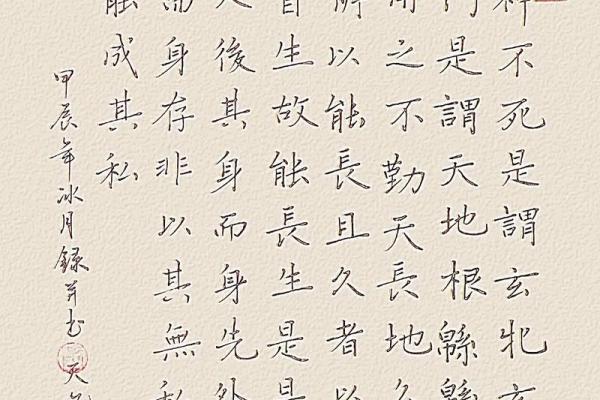 神不死是謂玄牝玄
門是謂天地根緜緜
用之不勤天長地久
所以能長且久者以
自生故能長生是
人後其身而身先外
而身存非以其無私
能成其私
甲辰年冰月錄并书 天